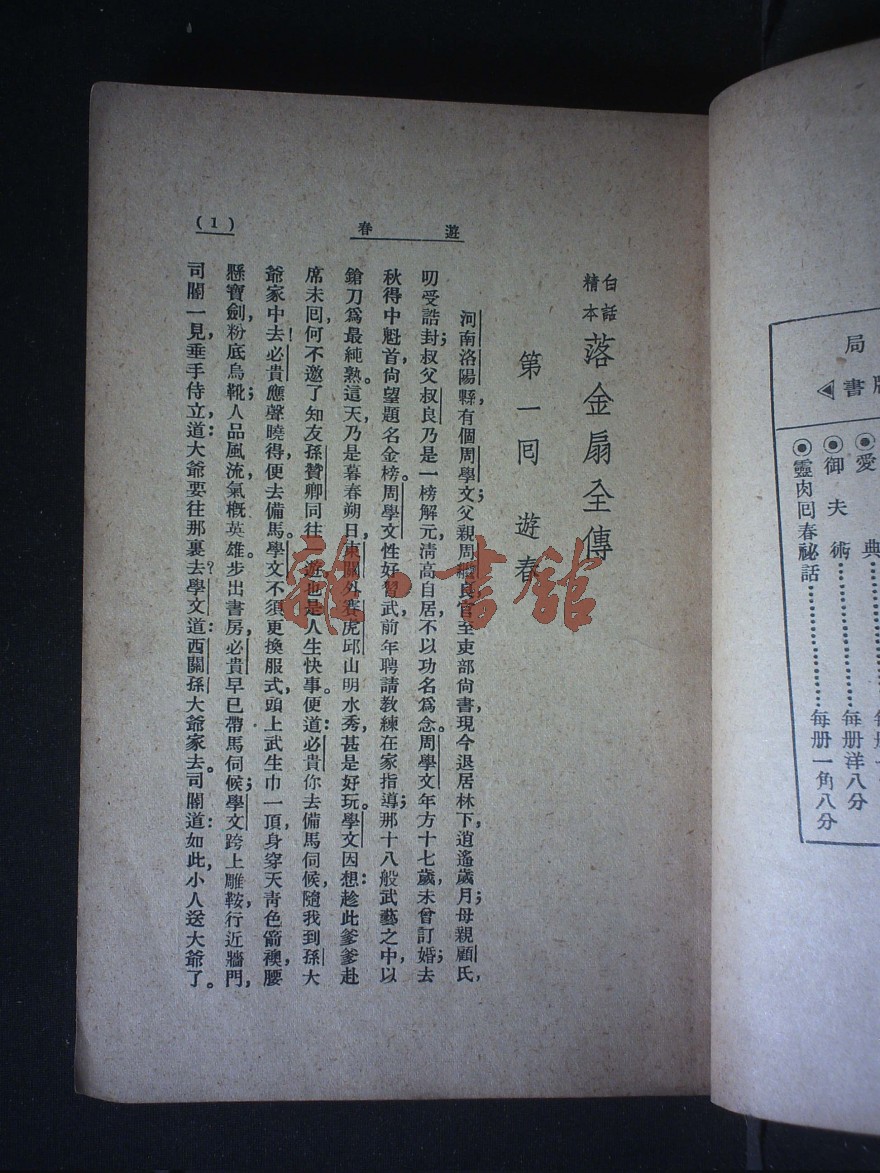 局
書
◉愛
典
◉御夫術………………每册洋八分
◉靈肉囘春祕話………………每册一角八分
白話
精本
落金扇全傳
第一囘 遊春
遊春
河南洛陽縣，有個周學文；父親周繼良官至吏部尚書，現今退居林下，逍遙歲月；母親顧氏，
叨受誥封；叔父叔良乃是一榜解元，清高自居，不以功名爲念。周學文年方十七歲，未曾訂婚；去
秋得中魁首，尚望題名金榜。周學文性好習武，前年聘請教練在家指導；那十八般武藝之中，以
鎗刀爲最純熟。這天，乃是暮春朔日，東關外賽虎邱山明水秀，甚是好玩。學文因想：趁此爹爹赴
席未囘，何不邀了知友孫贊卿同往一遊，也是人生快事。便道：必貴你去備馬伺候，隨我到孫大
爺家中去！必貴應聲曉得，便去備馬。學文不須更換服式，頭上武生巾一頂，身穿天青色箭襖，腰
懸寶劍，粉底烏靴；人品風流，氣概英雄。步出書房，必貴早已帶馬伺候；學文跨上雕鞍，行近牆門，
司閽一見，垂手侍立，道：大爺要往那裏去？學文道：西關孫大爺家去。司閽道：如此，小人送大爺了。
(1)
雜·書館